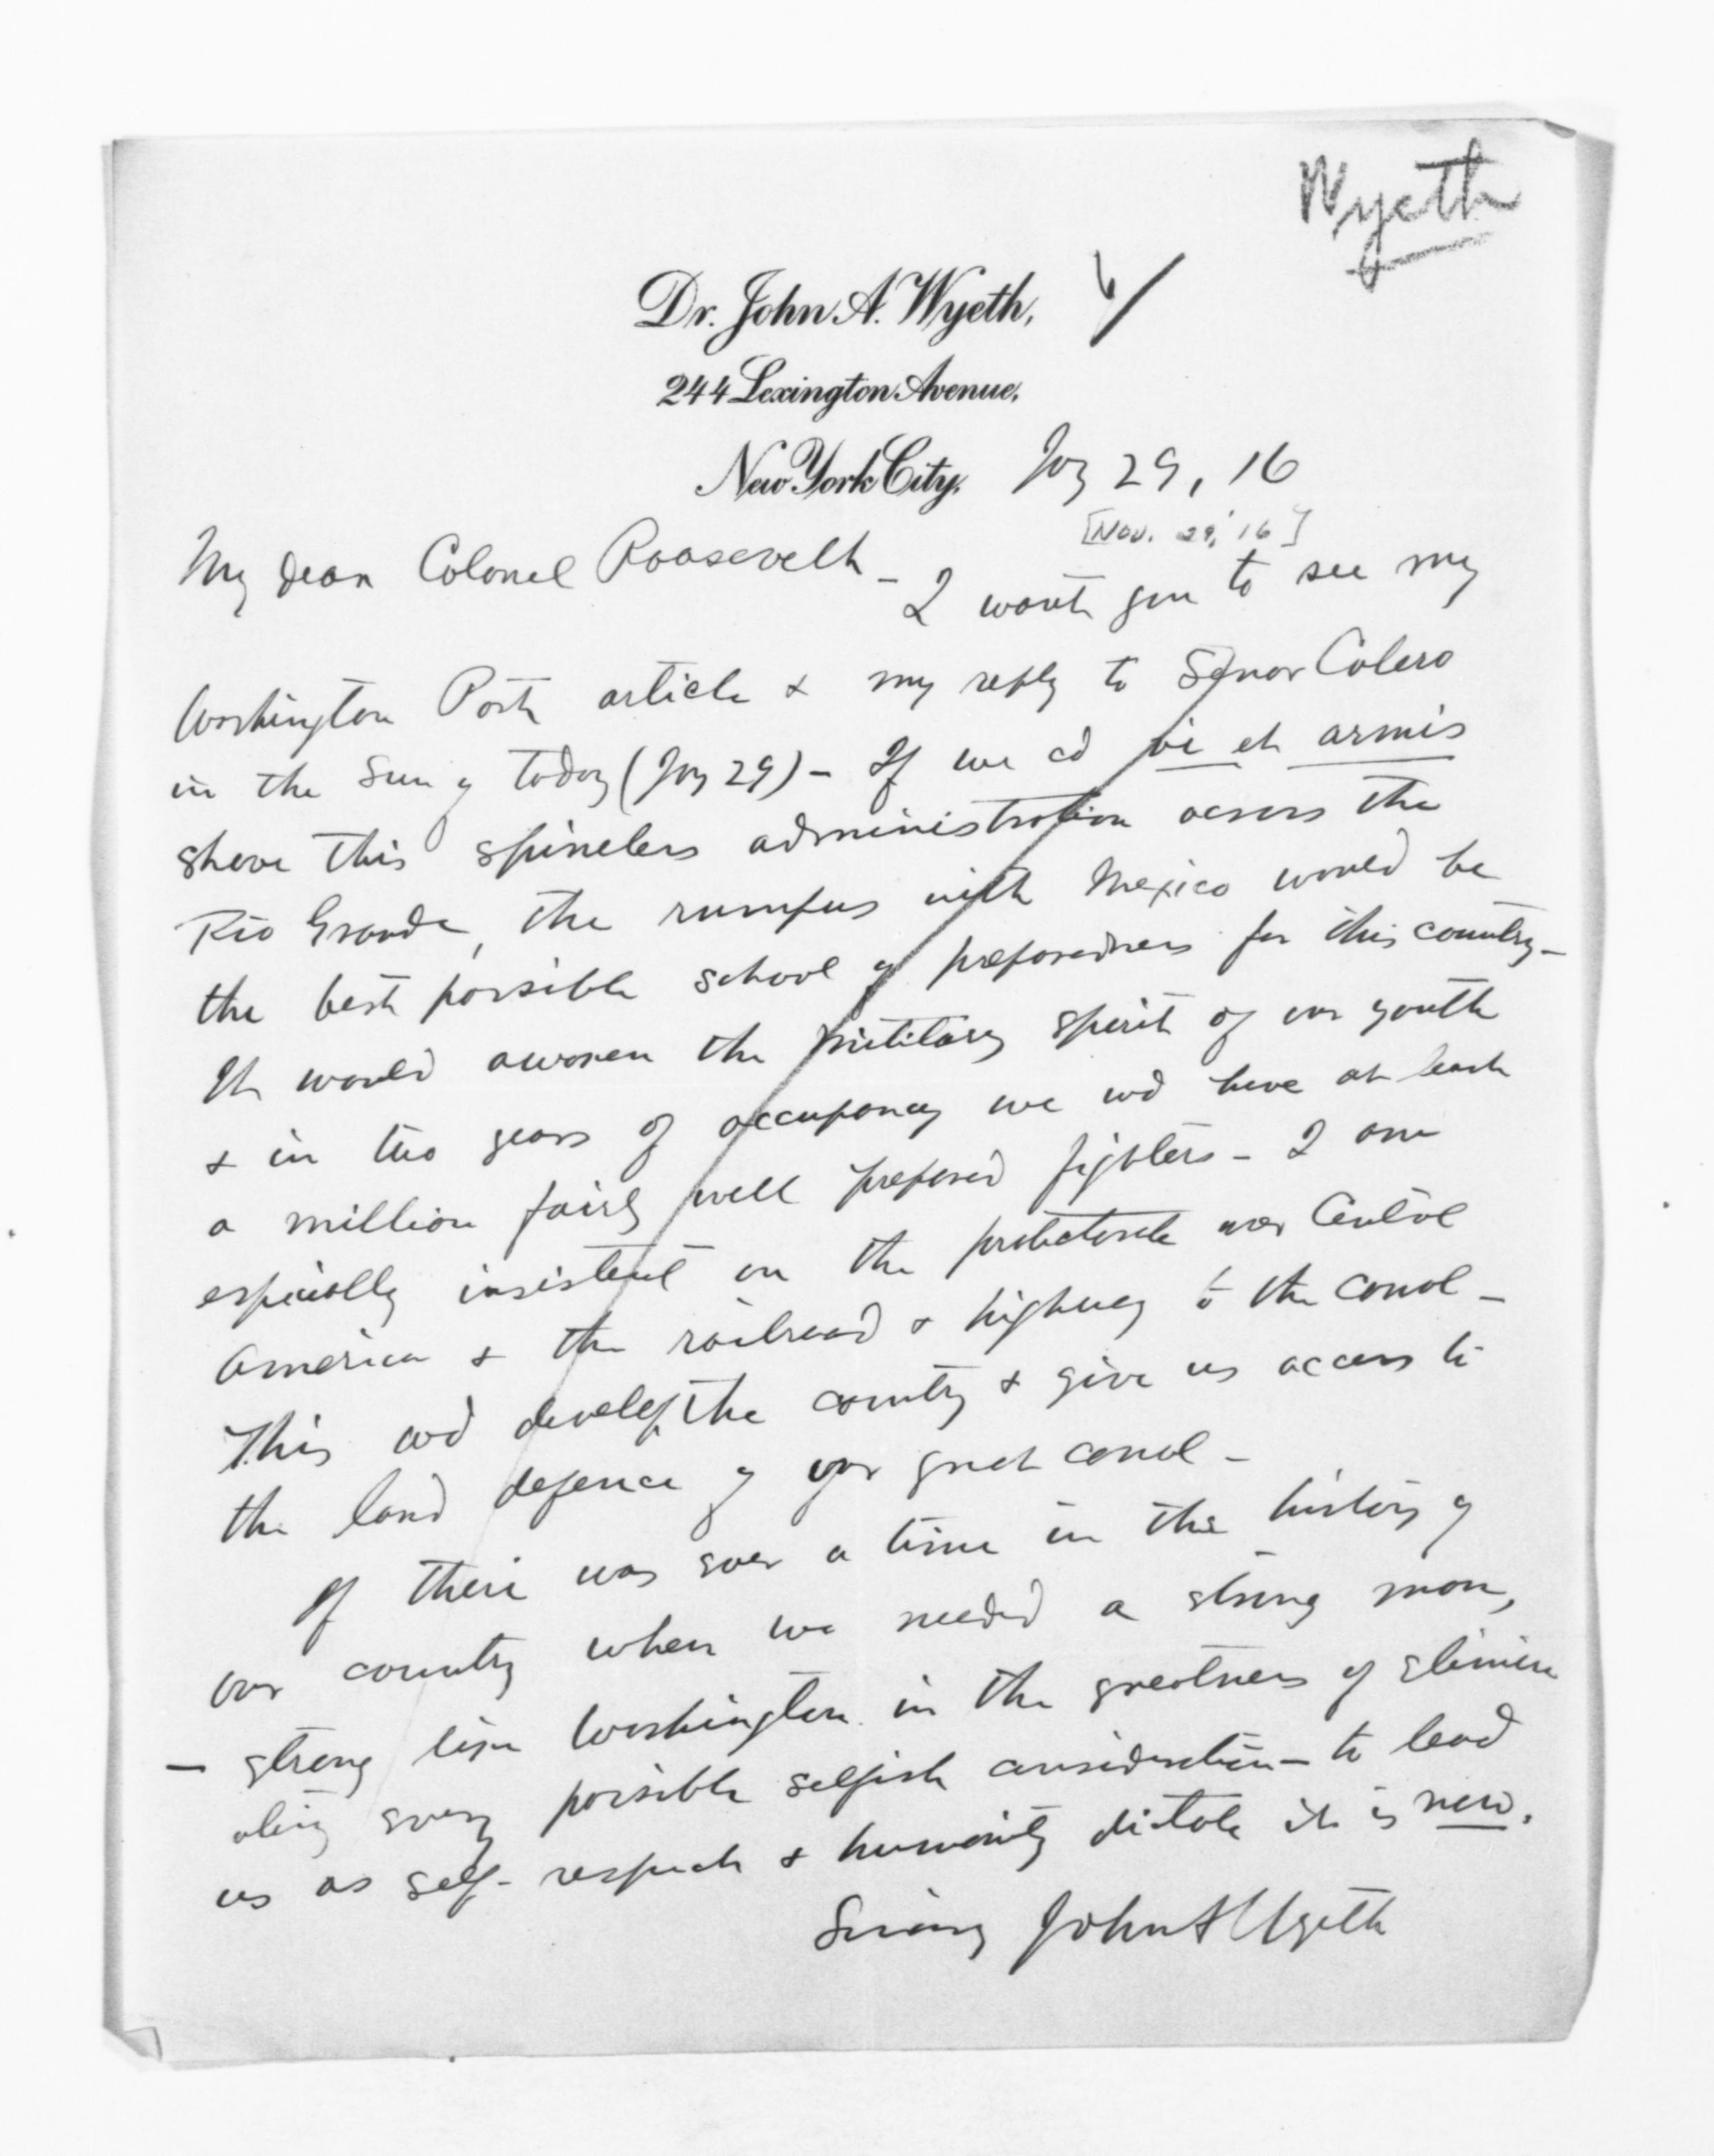 Wyeth
Dr. John A. Wyeth,
244 Lexington Avenue,
New York City.
29, 16
[Nov. 29, '16]
My dear Colonel Roosevelt -
I want you to see my
Washington Post article & my reply to Senor Calero
in the Sun of today ( 29) - If we cd vi et armis
shove this spineless administration across the
Rio Grande, the rumpus with Mexico would be
the best possible school of preparedness for this country -
It would awaken the military spirit of our youth
& in two years of occupancy we wd have at least
a million fairly well prepared fighters - I am
especially insistent on the protectorate over Central
America & the railroad & highway to the canal -
This wd develop the country & give us access to
the land defence of our great canal -
If there was ever a time in the history of
our country when we needed a strong man,
- strong like Washington in the greatness of elimin
ating every possible selfish consideration - to lead
us as self-respect & humanity dictate it is now.
John A Wyeth